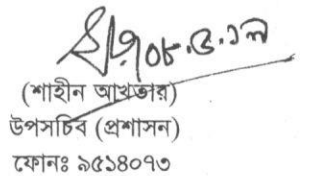 ০৮.৫.১৯
(শাহীন আখতার)
উপসচিব (প্রশাসন)
ফোনঃ ৯৫১৪০৭৩